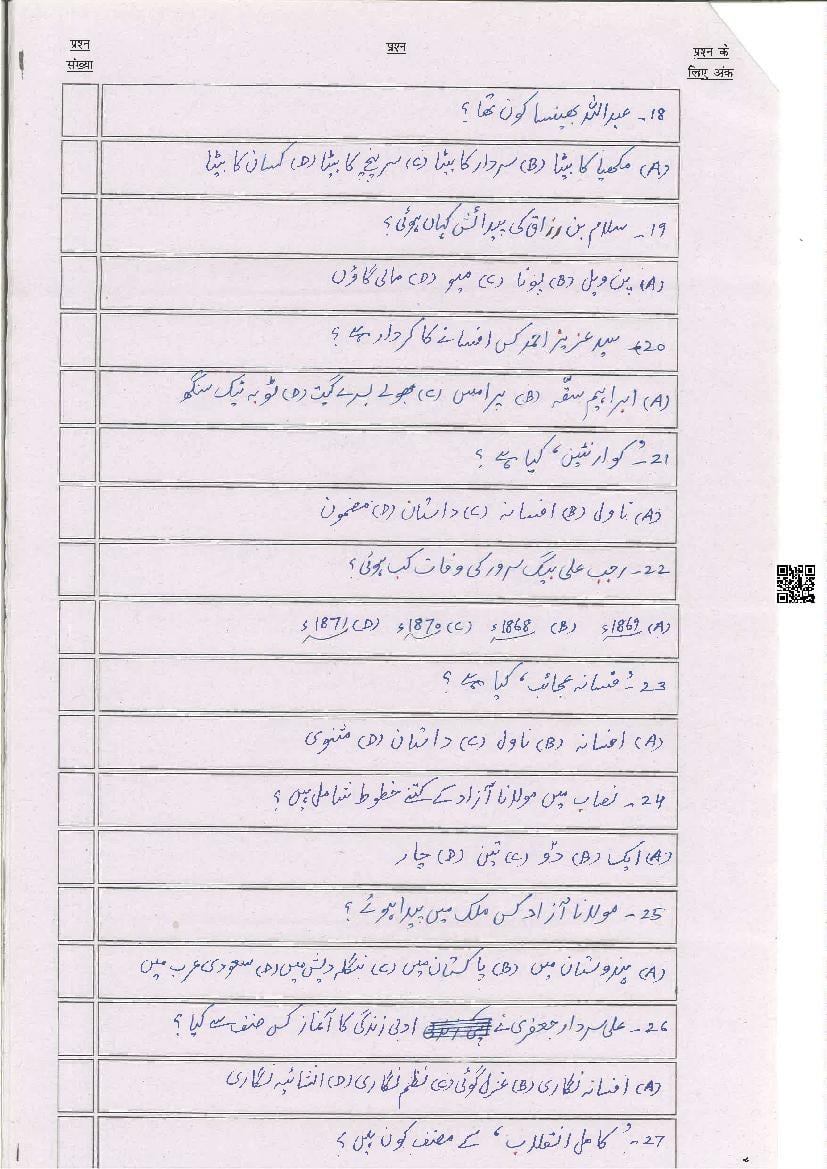 प्रश्न
संख्या
प्रश्न
प्रश्न के
लिए अंक
18۔ عبداللہ بھینسا کون تھا؟
(A) مکھیا کا بیٹا (B) سردار کا بیٹا (C) سرپنچ کا بیٹا (D) کسان کا بیٹا
19۔ سلام بن رزاق کی پیدائش کہاں ہوئی؟
(A) پن ویل (B) پونا (C) میو (D) مالی گاؤں
20۔ سید عزیز احمد کس افسانے کا کردار ہے؟
(A) ابراہیم سقّہ (B) پرامس (C) بھولے بسرے گیت (D) ٹوبہ ٹیک سنگھ
21۔ ’کوارنٹین‘ کیا ہے؟
(A) ناول (B) افسانہ (C) داستان (D) مضمون
22۔ رجب علی بیگ سرور کی وفات کب ہوئی؟
(A) 1869ء (B) 1868ء (C) 1870ء (D) 1871ء
23۔ ’فسانہ عجائب‘ کیا ہے؟
(A) افسانہ (B) ناول (C) داستان (D) مثنوی
24۔ نصاب میں مولانا آزاد کے کتنے خطوط شامل ہیں؟
(A) ایک (B) دو (C) تین (D) چار
25۔ مولانا آزاد کس ملک میں پیدا ہوئے؟
(A) ہندوستان میں (B) پاکستان میں (C) بنگلہ دیش میں (D) سعودی عرب میں
26۔ علی سردار جعفری نے ادبی زندگی کا آغاز کس صنف سے کیا؟
(A) افسانہ نگاری (B) غزل گوئی (C) نظم نگاری (D) انشائیہ نگاری
27۔ ’کامل انقلاب‘ کے مصنف کون ہیں؟